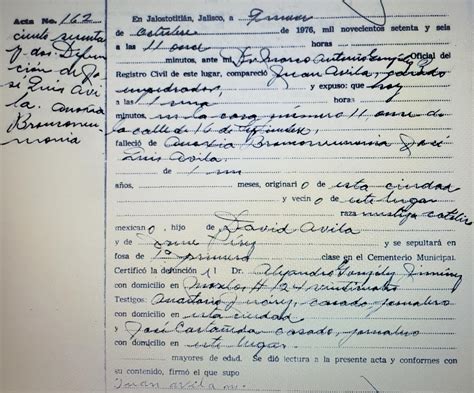 Acta No. 162
ciento sesenta
y dos. Defun
ción de Jo
sé Luis Avi
la. Anoxia
Bronconeu
monia
En Jalostotitlán, Jalisco, a primero
de octubre de 1976, mil novecientos setenta y seis
a las 11 once horas
minutos, ante mí Dr. Marco Antonio González Oficial del
Registro Civil de este lugar, compareció Juan Avila, casado
y expuso: que hoy
a las 1 una horas
minutos, en la casa número 11 once de
la calle 16 de Septiembre
falleció de Anoxia Bronconeumonia José
Luis Avila.
de 1 un
años, meses, originari o de esta ciudad
y vecin o de este lugar
raza mestiza
mexican o, hijo de David Avila
y de y se sepultará en
fosa de 1a primera clase en el Cementerio Municipal.
Certificó la defunción el Dr. Alejandro González Jiménez
con domicilio en Morelos # 24 veinticuatro
Testigos: casado, jornalero
con domicilio en esta ciudad
y José Castañeda casado, jornalero
con domicilio en este lugar.
mayores de edad. Se dió lectura a la presente acta y conformes con
su contenido, firmó el que supo
Juan avila m.